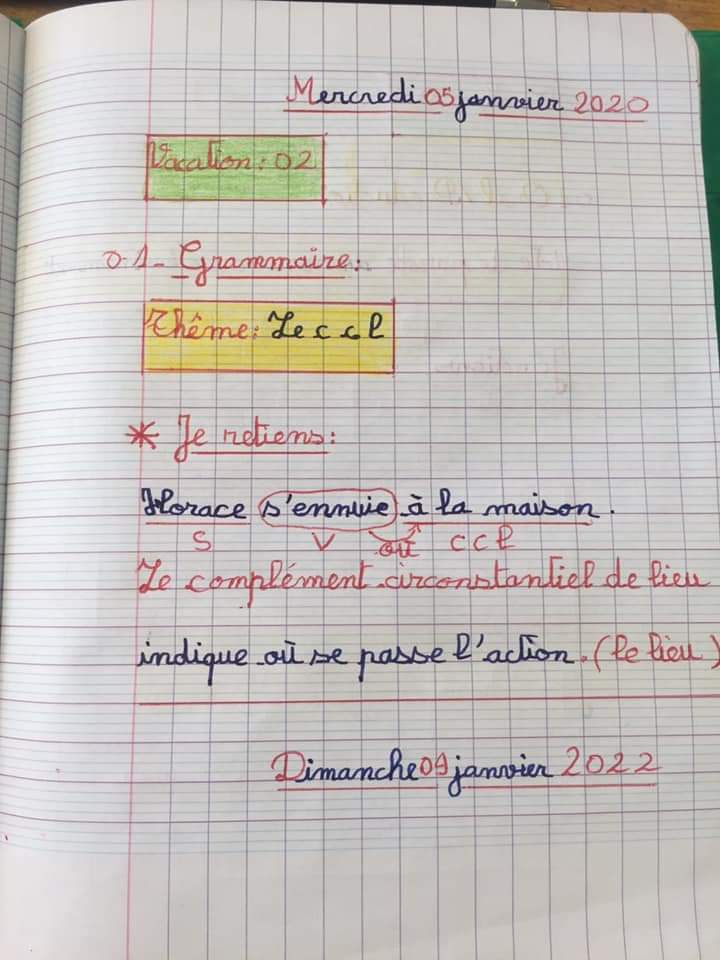 Mercredi 05 janvier 2020
Vacation: 02
01- Grammaire:
Thême: Le c c l
* Je retiens:
Horace s'ennuie à la maison.
S V où c c l
Le complément circonstantiel de lieu
indique où se passe l'action. (le lieu)
Dimanche 09 janvier 2022